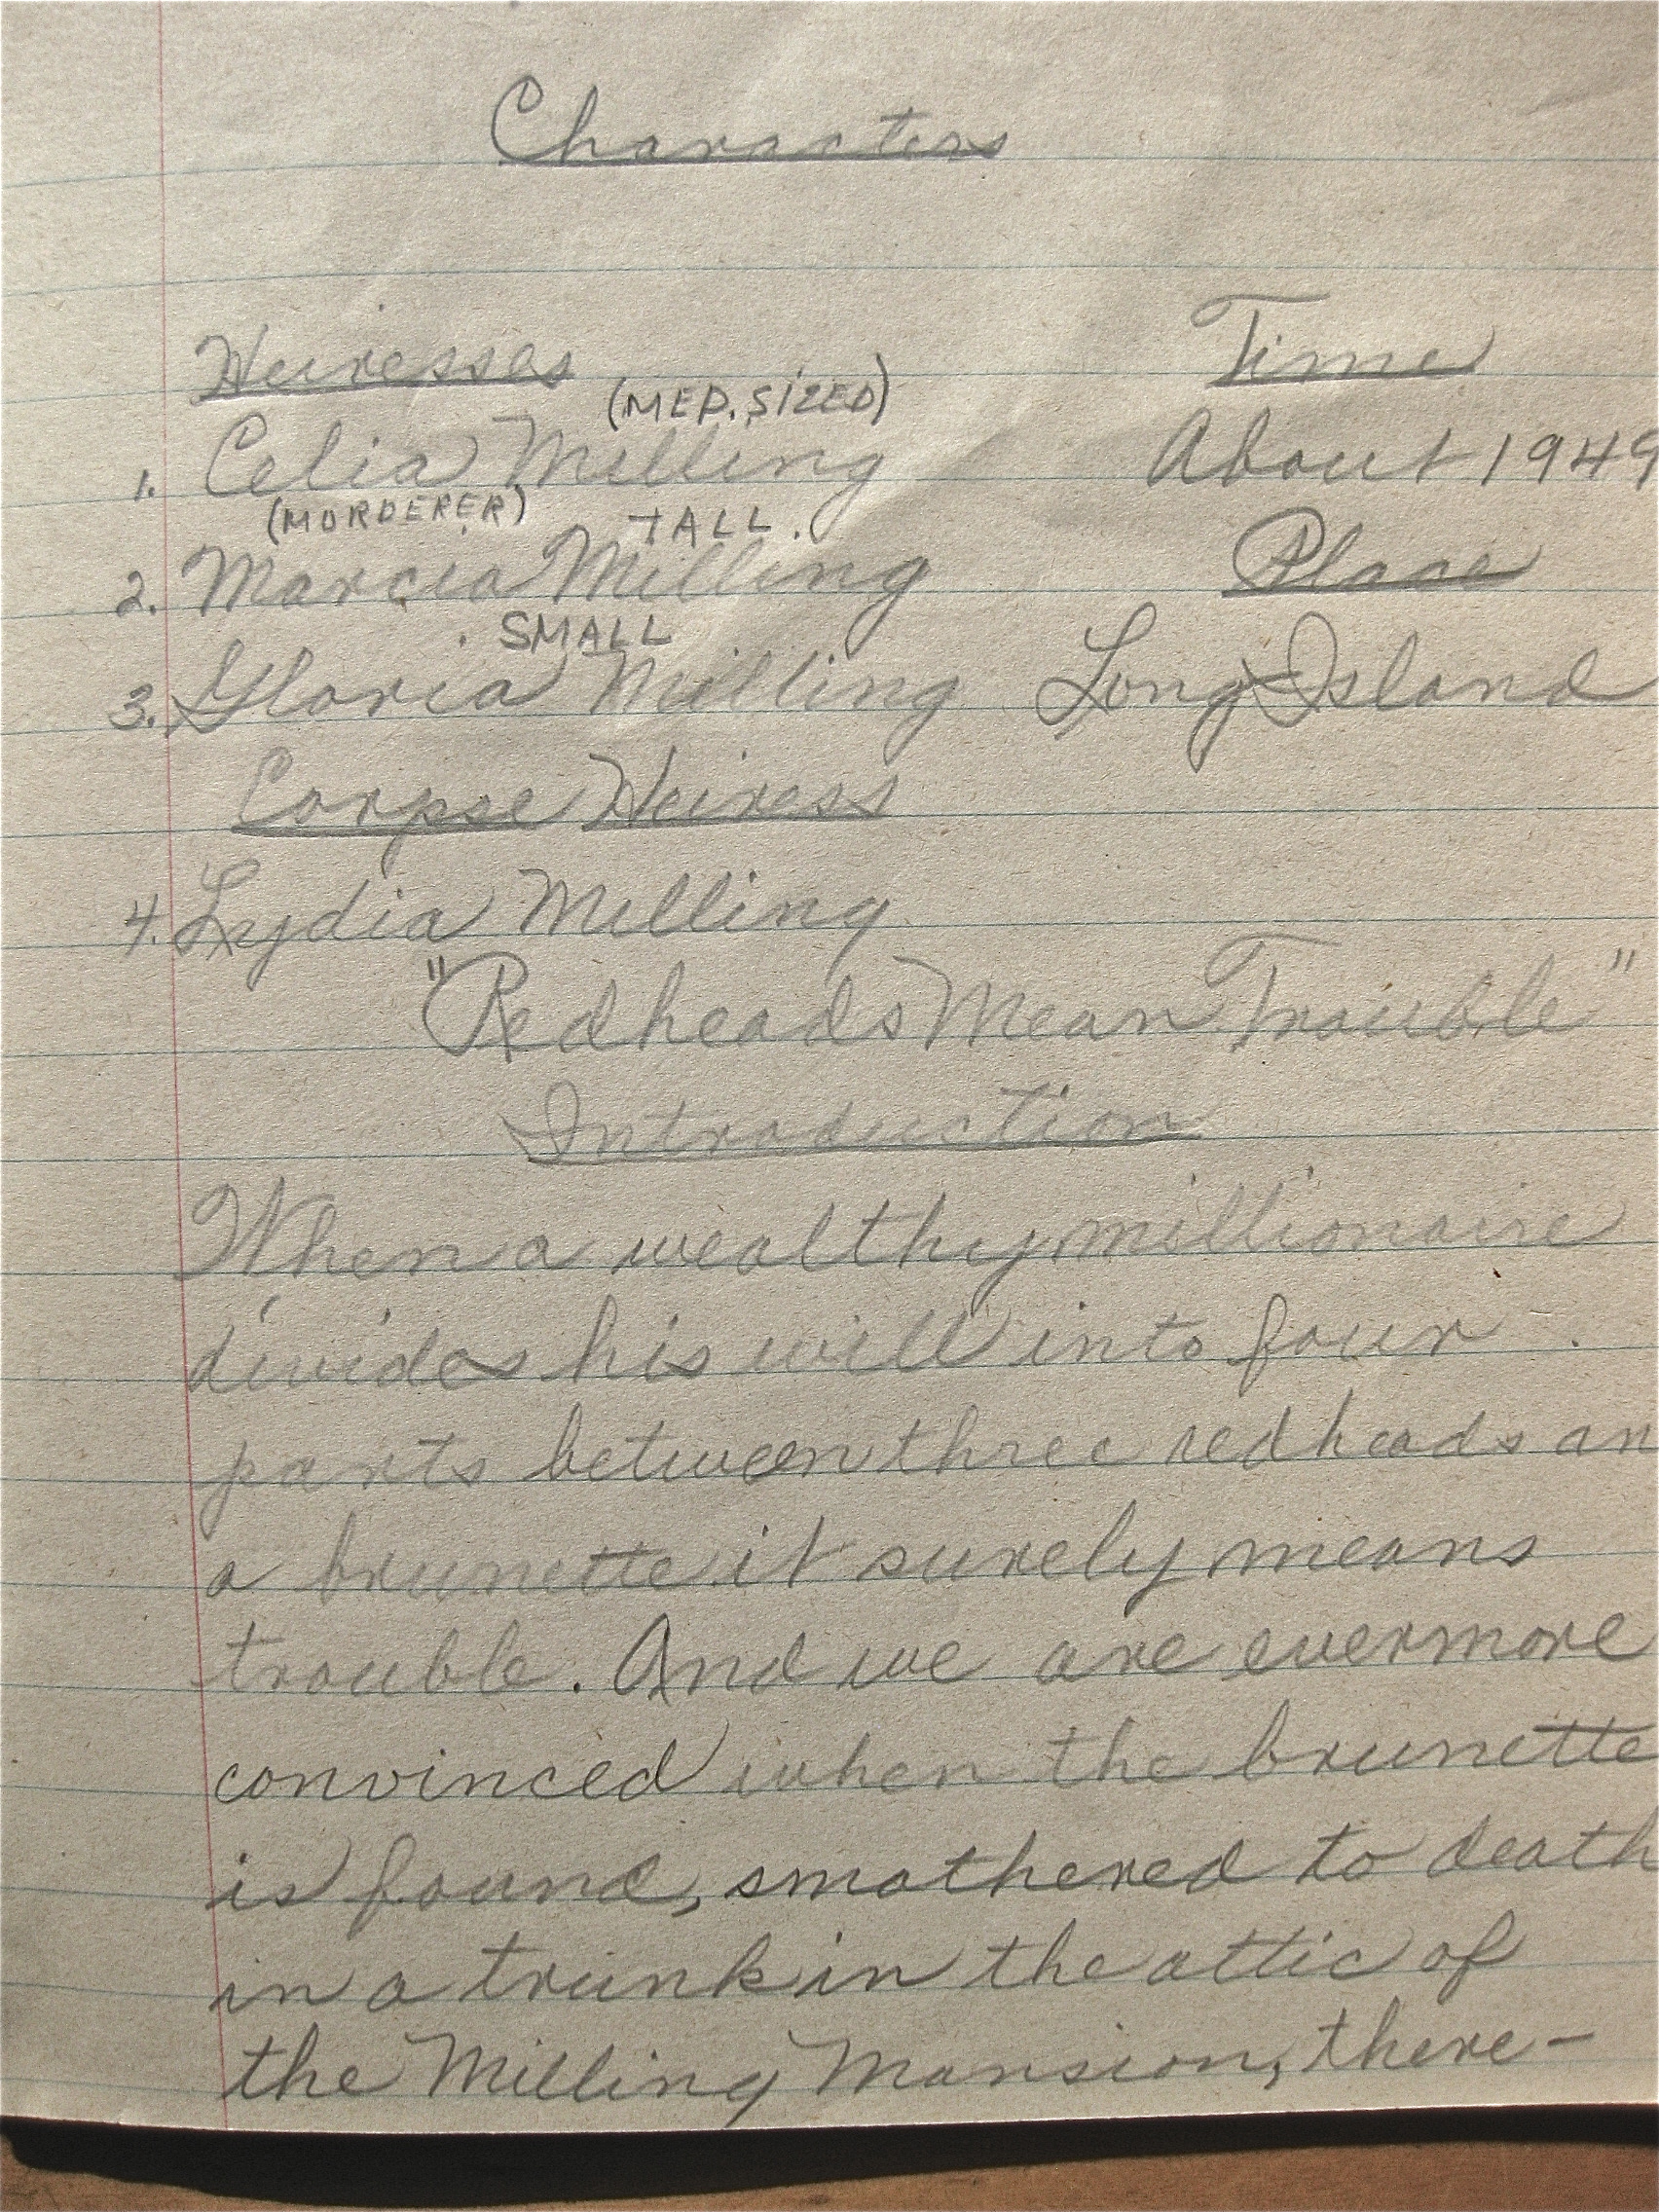 Characters
Heiresses Time
(MED. SIZED)
1. Celia Milling About 1949
(MURDERER) TALL.
2. Marcia Milling Place
SMALL
3. Gloria Milling Long Island
Corpse Heiress
4. Lydia Milling
"Redheads Mean Trouble"
Introduction
When a wealthy millionaire
divides his will into four
parts between three redheads an
a brunette it surely means
trouble. And we are evermore
convinced when the brunette
is found, smothered to death
in a trunk in the attic of
the Milling Mansion, there-